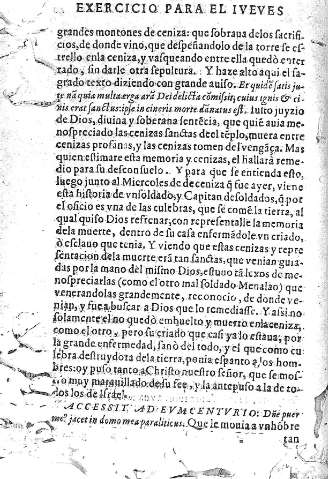 EXERCICIO PARA EL IVEVES
grandes montones de ceniza: que sobraua delos sacrifi-
cios, de donde vino, que despeñandolo de la torre se es-
trello enla ceniza, y vasqueando entre ella quedò enter
rado, sin darle otra sepultura. Y haze alto aquí el sa-
grado texto diziendo con grande auiso. Et quidẽ satis ju-
te nã quia multa erga arã Dei delicta cõmisit, cuius ignis & ci-
nis erat sanctus: ipse in cineris morte dãnatus est. Iusto juyzio
de Dios, diuina y soberana sentẽcia, que quiẽ auia me-
nospreciado las cenizas sanctas deel tẽplo, muera entre
cenizas profanas, y las cenizas tomen del vengãça. Mas
quien estimare esta memoria y cenizas, el hallarà reme-
dio para su desconsuelo. Y para que se entienda esto,
luego junto al Miercoles de ceniza q̃ fue ayer, viene
esta historia de vn soldado, y Capitan de soldados, q̃ por
el oficio es vna de las culebras, que se comẽ la tierra, al
qual quiso Dios refrenar, con representalle la memoria
dela muerte, dentro de su casa enfermãdole vn criado,
ò esclauo que tenia. Y viendo que estas cenizas y repre
sentacion de la muerte erã tan sanctas, que venian guia-
das por la mano del mismo Dios, estuuo tã lexos de me-
nospreciarlas (como el otro mal soldado Menalao) que
venerandolas grandemente, reconocio, de donde ve-
nian, y fue a buscar a Dios que lo remediasse. Y assi no
solamente el no quedò embuelto y muerto enla ceniza,
como el otro, pero su criado que casi ya lo estaua; por
la grande enfermedad, sanò del todo, y el que como cu
lebra destruydora dela tierra, ponia espanto a los hom-
bres: oy puso tanto a Christo nuestro señor, que se mos-
trò muy marauillado de su fee, y la antepuso a la de to-
dos los de Israel.
ACCESSIT AD EVM CENTVRIO: Dñe puer
me⁹ jacet in domo mea paraliticus. Que le monia a vn hõbre
tan